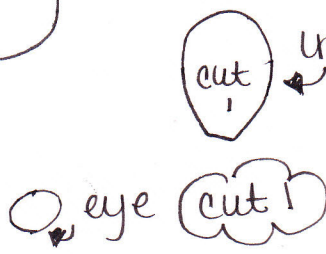 cut
!
eye cut!